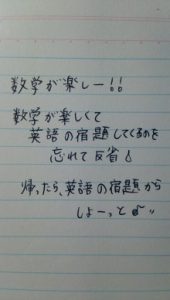 数学が楽しー!!
数学が楽しくて
英語の宿題してくるのを
忘れて反省💧
帰ったら、英語の宿題から
しよーっと♪"